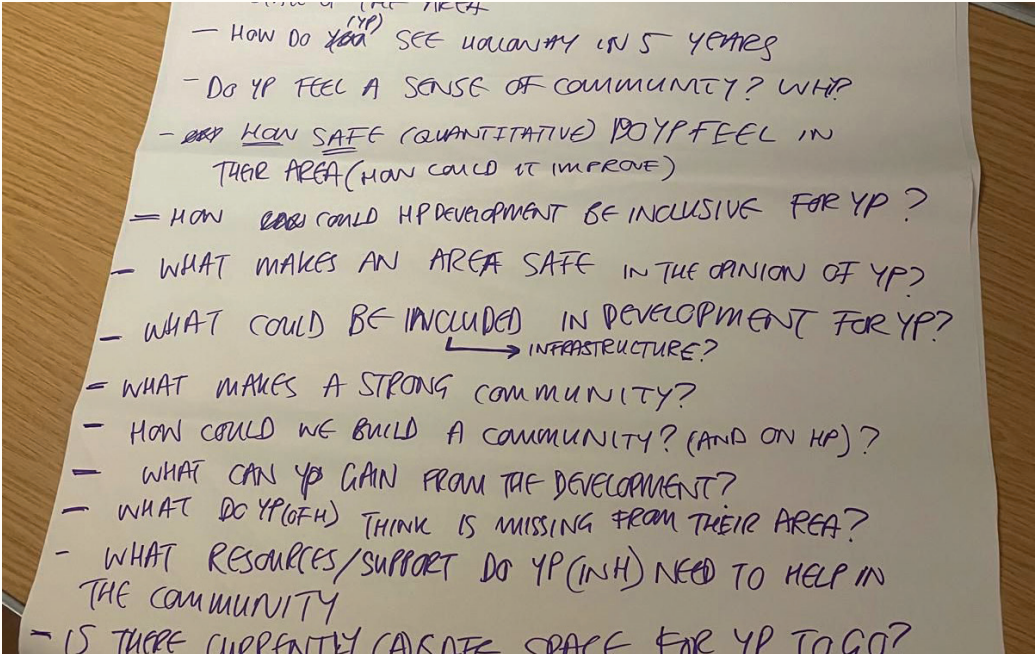 THE AREA
(YP)
— HOW DO SEE HOLLOWAY IN 5 YEARS
- DO YP FEEL A SENSE OF COMMUNITY? WHY?
- HOW SAFE (QUANTITATIVE) DO YP FEEL IN
THEIR AREA (HOW COULD IT IMPROVE)
- HOW COULD HP DEVELOPMENT BE INCLUSIVE FOR YP?
- WHAT MAKES AN AREA SAFE IN THE OPINION OF YP?
- WHAT COULD BE INCLUDED IN DEVELOPMENT FOR YP?
→ INFRASTRUCTURE?
- WHAT MAKES A STRONG COMMUNITY?
- HOW COULD WE BUILD A COMMUNITY? (AND ON HP)?
- WHAT CAN YP GAIN FROM THE DEVELOPMENT?
- WHAT DO YP (OF H) THINK IS MISSING FROM THEIR AREA?
- WHAT RESOURCES/SUPPORT DO YP (IN H) NEED TO HELP IN
THE COMMUNITY
- IS THERE CURRENTLY SPACE FOR YP TO GO?